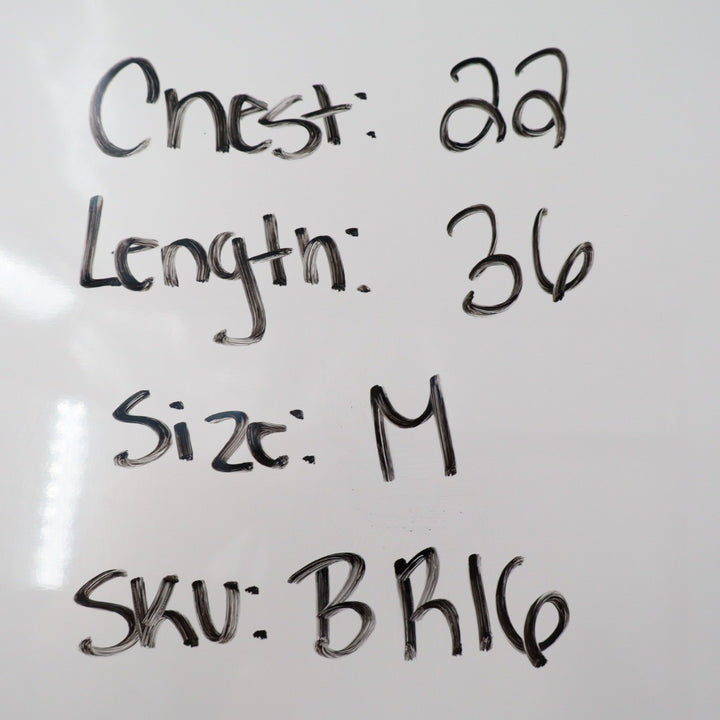 Chest: 22
Length: 36
Size: M
SKU: BR16